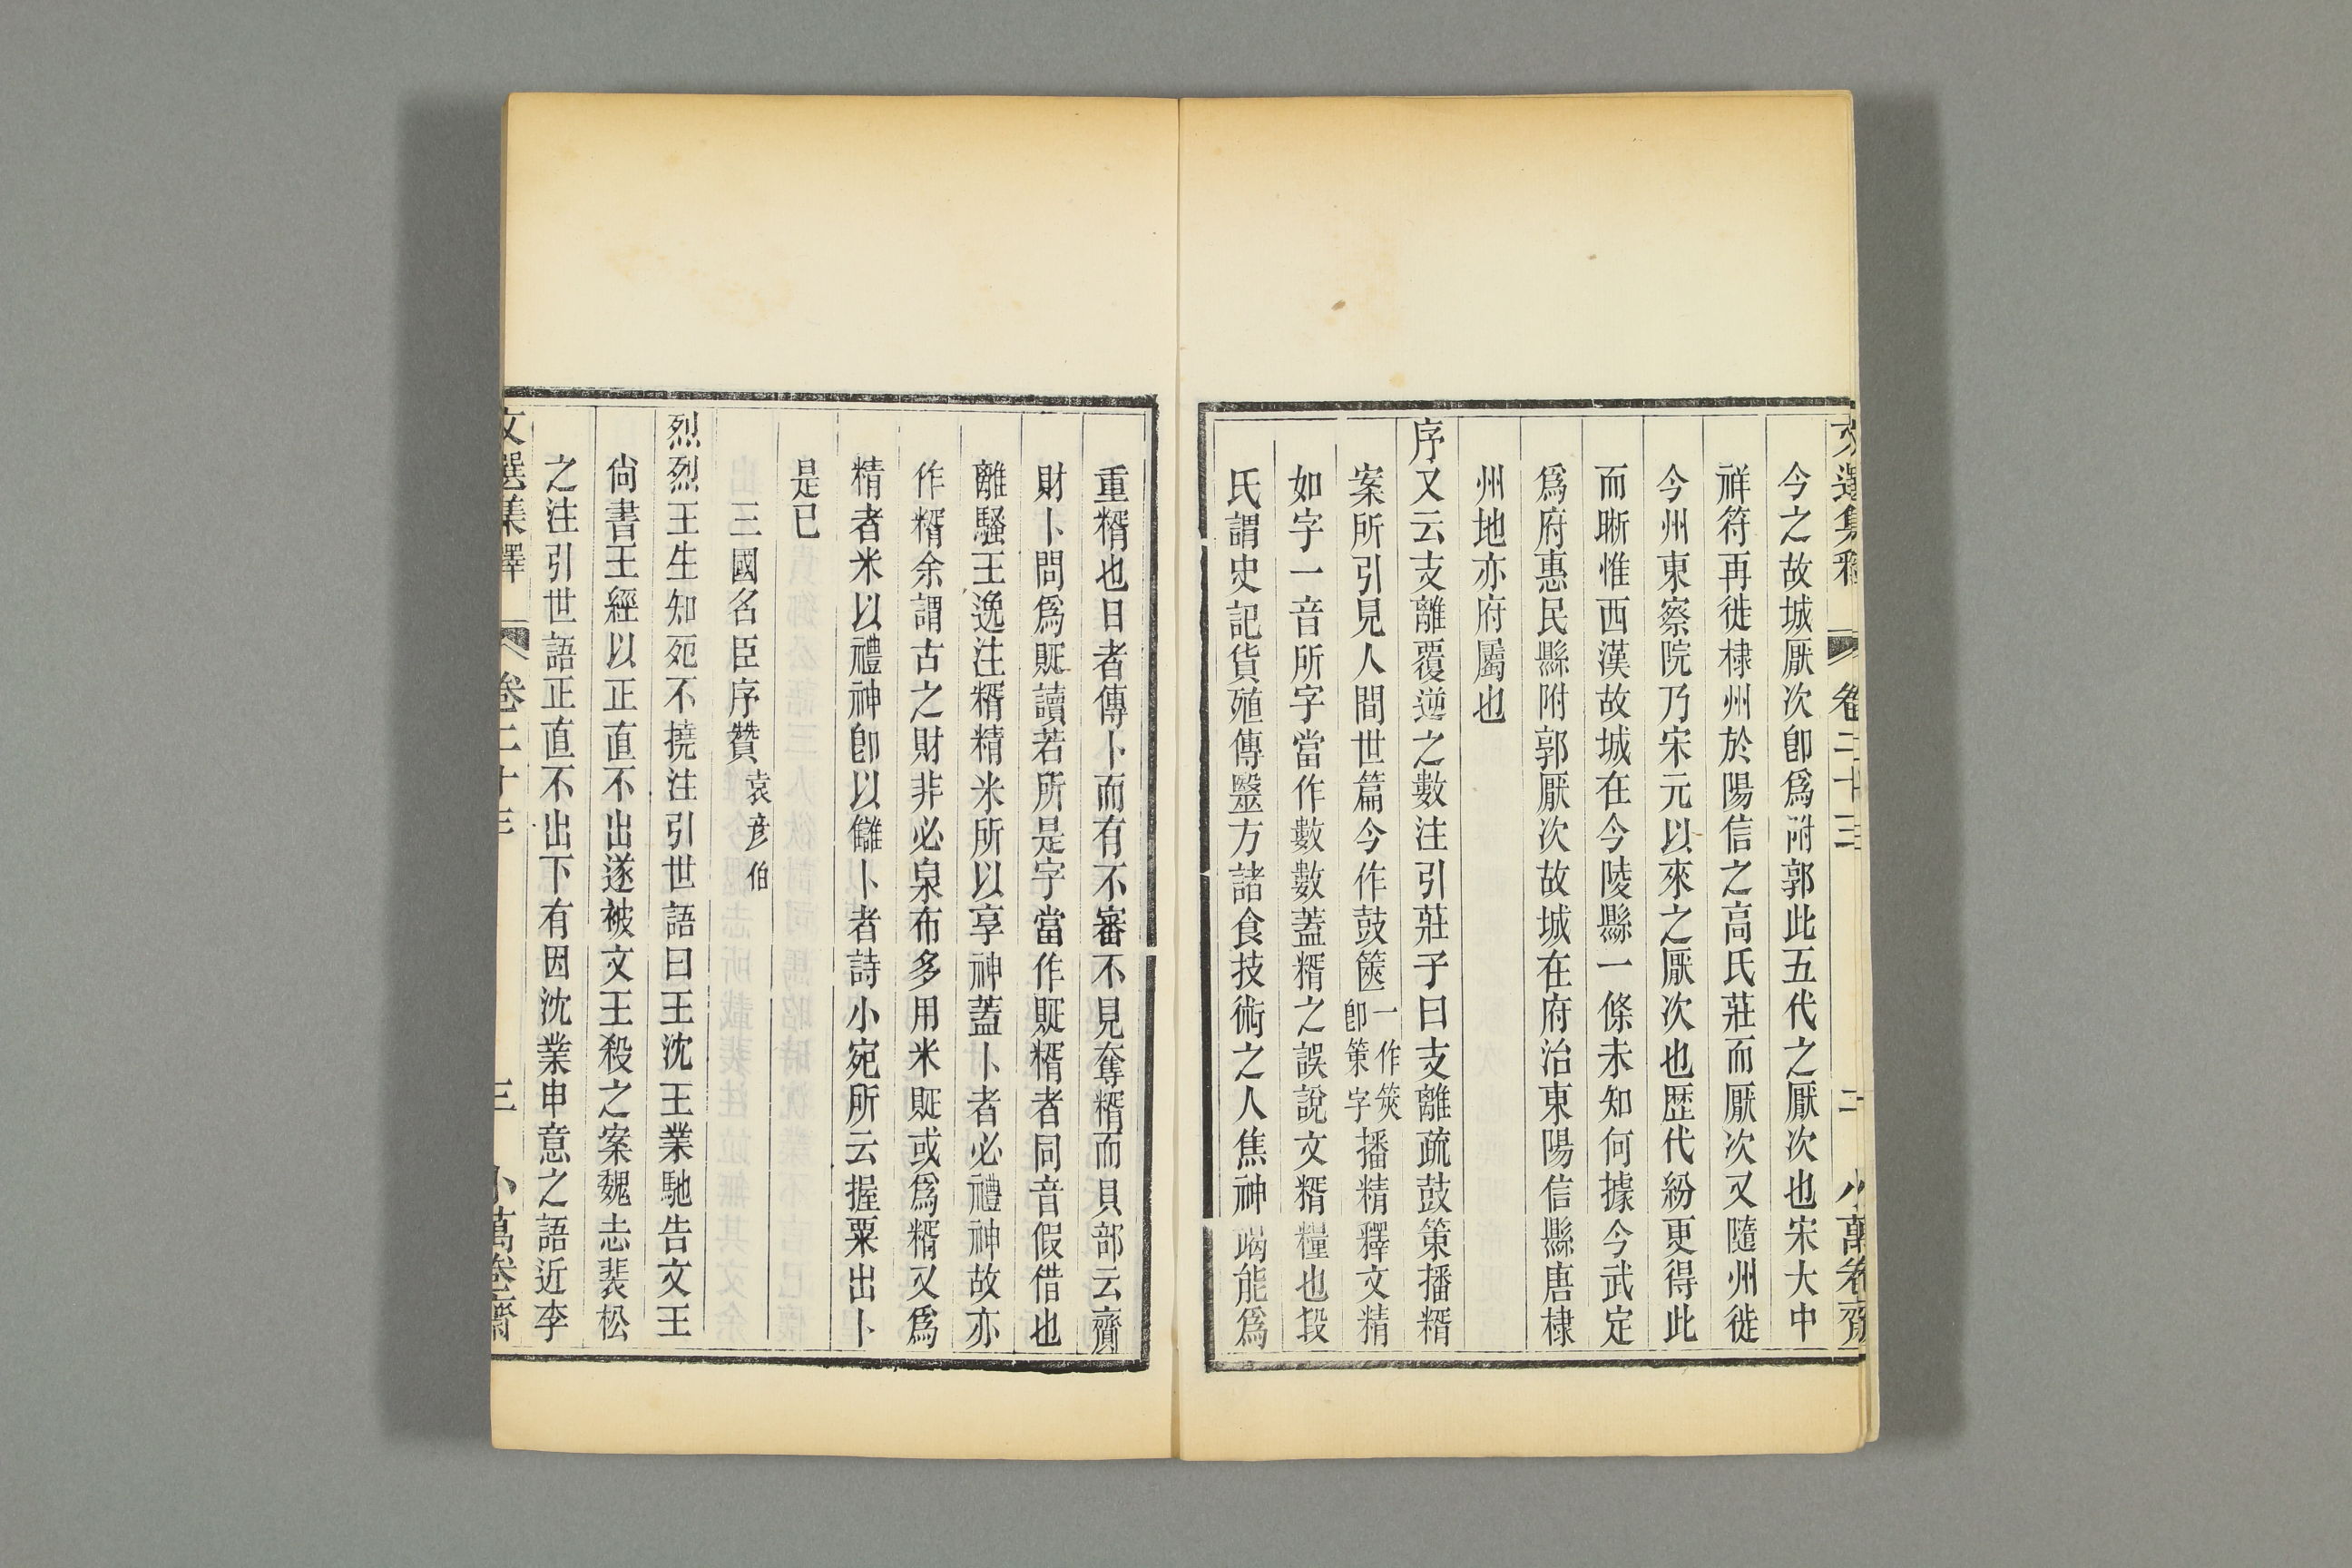 文選集釋 卷二十三 二 小萬卷齋
今之故城厭次卽爲附郭此五代之厭次也宋大中
祥符再徙棣州於陽信之高氏莊而厭次又隨州徙
今州東察院乃宋元以來之厭次也歷代紛更得此
而晰惟西漢故城在今陵縣一條未知何據今武定
爲府惠民縣附郭厭次故城在府治東陽信縣唐棣
州地亦府屬也
序又云支離覆逆之數注引莊子曰支離疏鼓策播糈
案所引見人間世篇今作鼓篋一作筴卽策字播精釋文精
如字一音所字當作數數蓋糈之誤說文糈糧也段
氏謂史記貨殖傳毉方諸食技術之人焦神竭能爲
重糈也日者傳卜而有不審不見奪糈而貝部云齎
財卜問爲貶讀若所是字當作貶糈者同音假借也
離騷王逸注糈精米所以享神蓋卜者必禮神故亦
作糈余謂古之財非必泉布多用米貶或爲糈又爲
精者米以禮神卽以讎卜者詩小宛所云握粟出卜
是已
三國名臣序贊袁彥伯
烈烈王生知死不撓注引世語曰王沈王業馳告文王
尙書王經以正直不出遂被文王殺之案魏志裴松
之注引世語正直不出下有因沈業申意之語近李
文選集釋 卷二十三 三 小萬卷齋